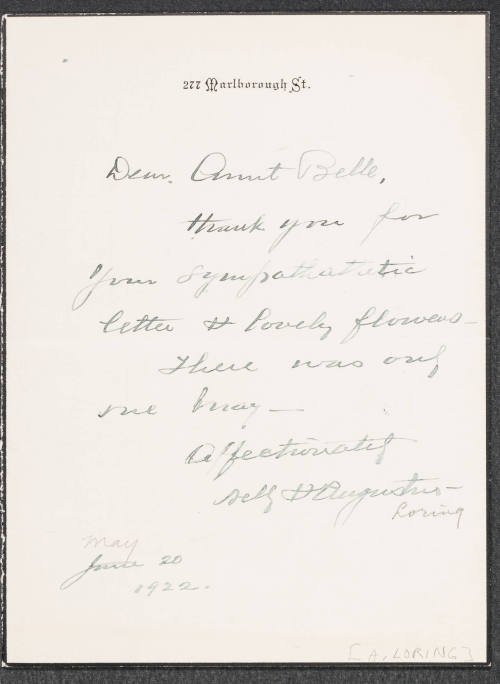 277 Marlborough St.
Dear Aunt Belle,
thank you for
your sympathatetic
letter & lovely flowers -
There was only
one May -
Affectionately
Nelly & Augustus -
Loring
May
June 20
1922.
[A. LORING]